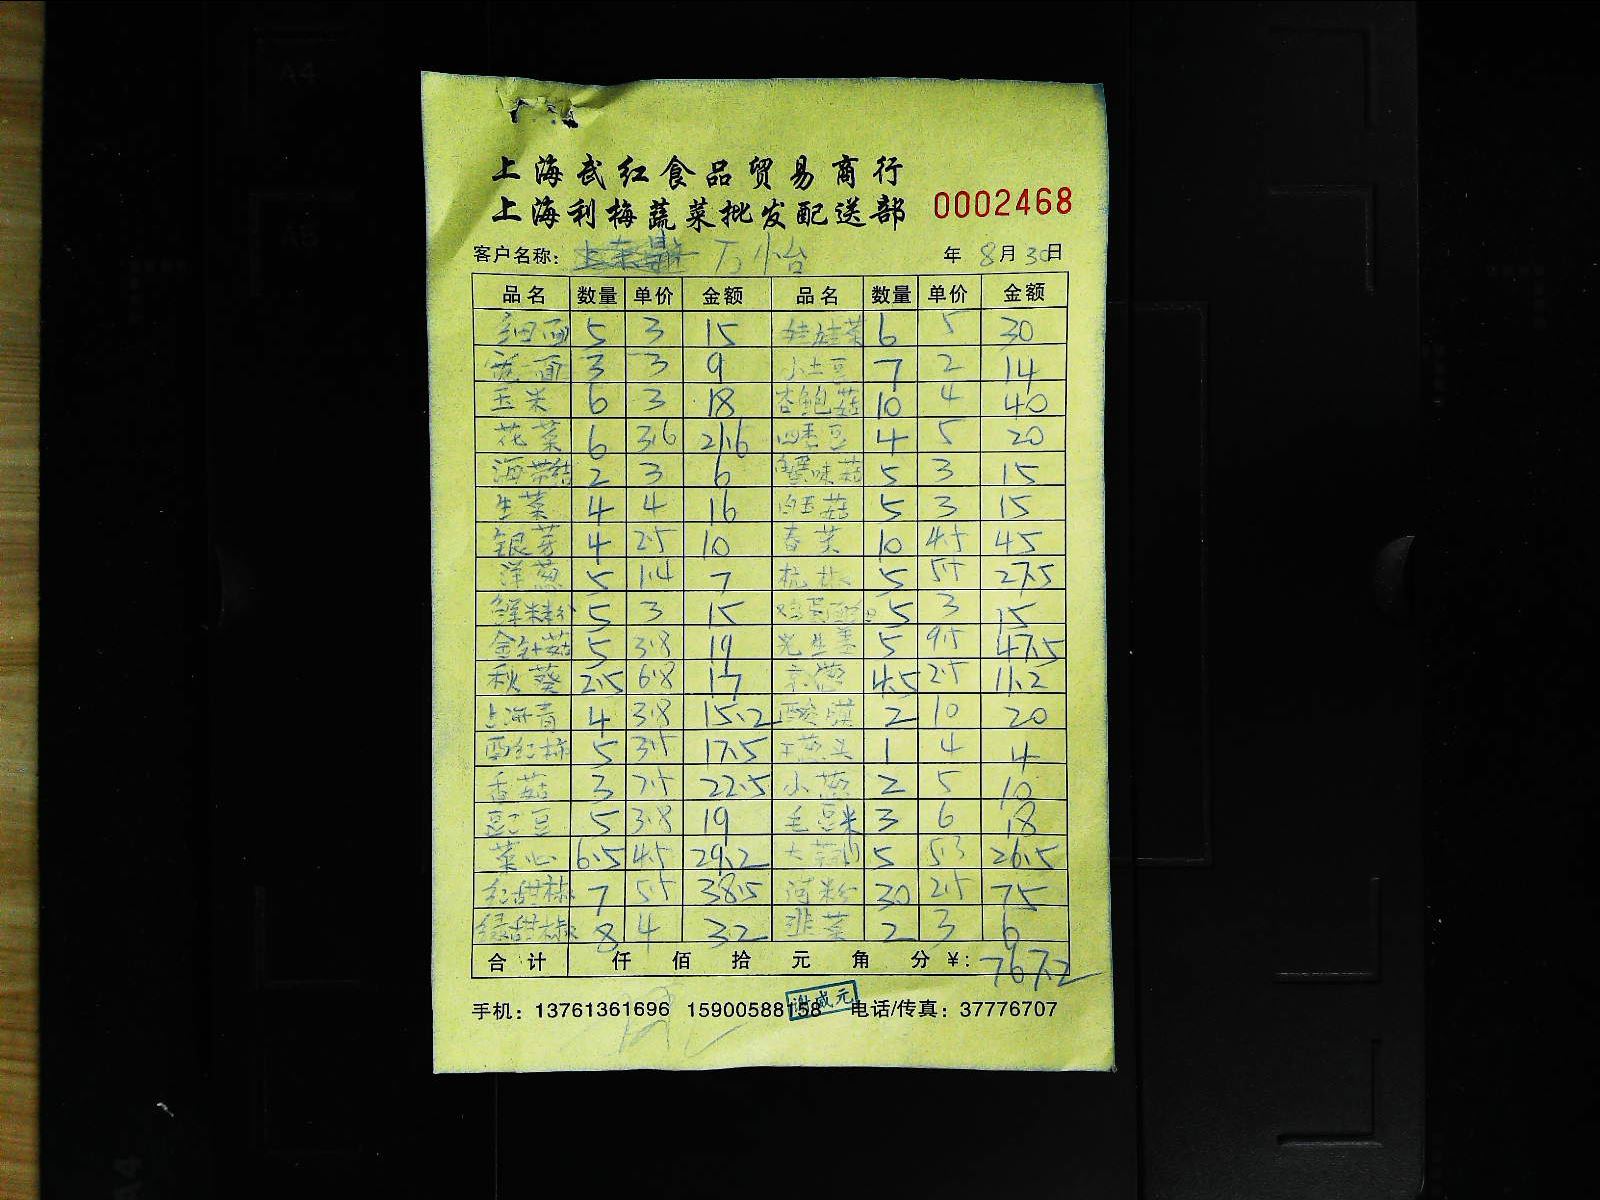 上海武红食品贸易商行
上海利梅蔬菜批发配送部 0002468
客户名称: 万 年 8月30日
品名 数量 单价 金额 品名 数量 单价 金额
细面 5 3 15 娃娃菜 6 5 30
宽面 3 3 9 小土豆 7 2 14
玉米 6 3 18 杏鲍菇 10 4 40
花菜 6 3.6 21.6 四季豆 4 5 20
海带结 2 3 6 蟹味菇 5 3 15
生菜 4 4 16 白玉菇 5 3 15
银芽 4 2.5 10 10 4.5 45
洋葱 5 1.4 7 杭椒 5 5.5 27.5
5 3 15 5 3 15
金针菇 5 3.8 19 老生姜 5 9.5 47.5
秋葵 2.5 6.8 17 京葱 4.5 2.5 11.2
上海青 4 3.8 15.2 2 10 20
西红柿 5 3.5 17.5 干葱头 1 4 4
香菇 3 7.5 22.5 小葱 2 5 10
豇豆 5 3.8 19 毛豆米 3 6 18
菜心 6.5 4.5 29.2 5 5.3 26.5
红甜椒 7 5.5 38.5 河粉 30 2.5 75
绿甜椒 8 4 32 韭菜 2 3 6
合计 仟 佰 拾 元 角 分 ¥: 767.2
手机: 13761361696 15900588158 电话/传真: 37776707